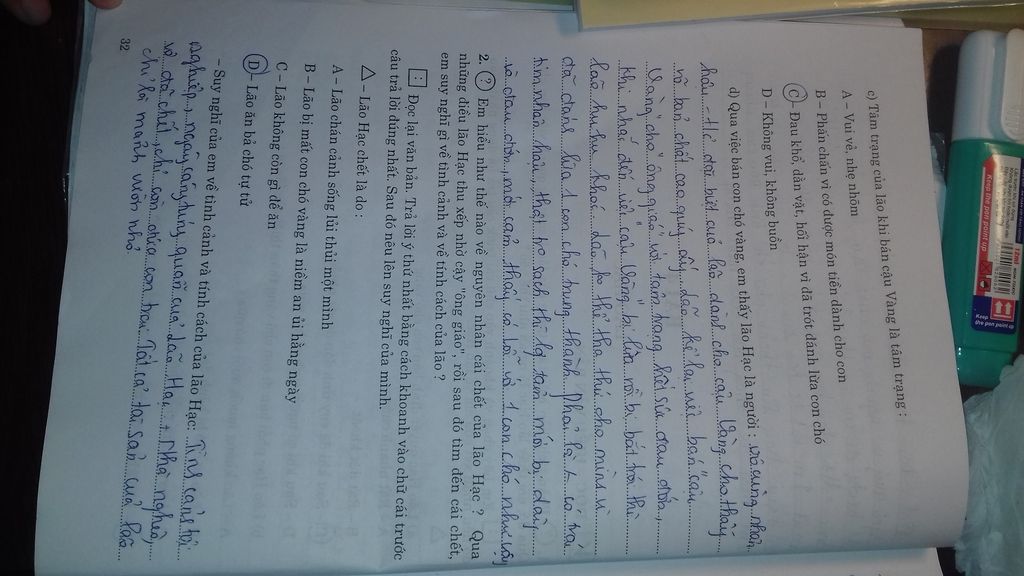 c) Tâm trạng của lão khi bán cậu Vàng là tâm trạng :
A – Vui vẻ, nhẹ nhõm
B – Phấn chấn vì có được món tiền dành cho con
C – Đau khổ, dằn vặt, hối hận vì đã trót đánh lừa con chó
D – Không vui, không buồn
d) Qua việc bán con chó vàng, em thấy lão Hạc là người : vô cùng nhân
hậu
và bản chất cao quý ấy lão kể lại việc bán "cậu
Vàng" cho "ông giáo" với tâm trạng hết sức đau đớn,
khi nhắc đến việc cậu Vàng bị lừa rồi bị bắt trói thì
lão hu hu khóc lão ko thể tha thứ cho mình vì
đã đánh lừa 1 con chó trung thành. Phải là 1 có trái
tim nhân hậu, thật
và đau đớn, mới cảm thấy có lỗi với 1 con chó như vậy
2. ? Em hiểu như thế nào về nguyên nhân cái chết của lão Hạc ? Qua
những điều lão Hạc thu xếp nhờ cậy "ông giáo", rồi sau đó tìm đến cái chết,
em suy nghĩ gì về tình cảnh và về tính cách của lão ?
Đọc lại văn bản. Trả lời ý thứ nhất bằng cách khoanh vào chữ cái trước
câu trả lời đúng nhất. Sau đó nêu lên suy nghĩ của mình.
– Lão Hạc chết là do :
A – Lão chán cảnh sống lủi thủi một mình
B – Lão bị mất con chó vàng là niềm an ủi hàng ngày
C – Lão không còn gì để ăn
D – Lão ăn bả chó tự tử
– Suy nghĩ của em về tình cảnh và tính cách của lão Hạc: Tình cảnh tội
nghiệp, ngày càng túng quẫn của lão Hạc + Nhà nghèo,
vợ đã chết, chỉ còn đứa con trai. Tất cả tài sản của lão
chỉ là mảnh vườn nhỏ.
32
Keep the pen point up
Keep the pen point up